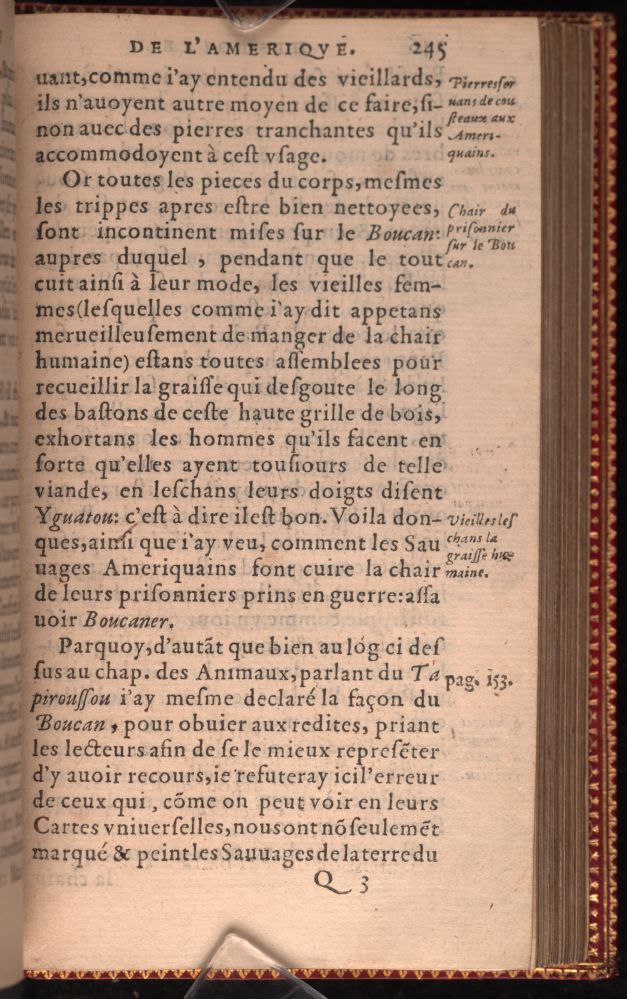 DE L'AMERIQVE. 245
uant, comme i'ay entendu des vieillards,
ils n'auoyent autre moyen de ce faire, ſi-
non auec des pierres tranchantes qu'ils
accommodoyent à ceſt vſage.
Pierres ſer
uans de cou
ſteaux aux
Ameri-
quains.
Or toutes les pieces du corps, meſmes
les trippes apres eſtre bien nettoyees,
ſont incontinent miſes ſur le Boucan:
aupres duquel, pendant que le tout
cuit ainſi à leur mode, les vieilles fem-
mes (leſquelles comme i'ay dit appetans
merueilleuſement de manger de la chair
humaine) eſtans toutes aſſemblees pour
recueillir la graiſſe qui deſgoute le long
des baſtons de ceſte haute grille de bois,
exhortans les hommes qu'ils facent en
ſorte qu'elles ayent touſiours de telle
viande, en leſchans leurs doigts diſent
Yguatou: c'eſt à dire il eſt bon. Voila don-
ques, ainſi que i'ay veu, comment les Sau
uages Ameriquains font cuire la chair
de leurs priſonniers prins en guerre: aſſa
uoir Boucaner.
Chair du
priſonnier
ſur le Bou
can.
Vieilles leſ
chans la
graiſſe hu-
maine.
Parquoy, d'autãt que bien au lõg ci deſ
ſus au chap. des Animaux, parlant du Ta
pirouſſou i'ay meſme declaré la façon du
Boucan, pour obuier aux redites, priant
les lecteurs afin de ſe le mieux repreſẽter
d'y auoir recours, ie refuteray ici l'erreur
de ceux qui, cõme on peut voir en leurs
Cartes vniuerſelles, nous ont nõ ſeulemẽt
marqué & peint les Sauuages de la terre du
pag. 153.
Q 3